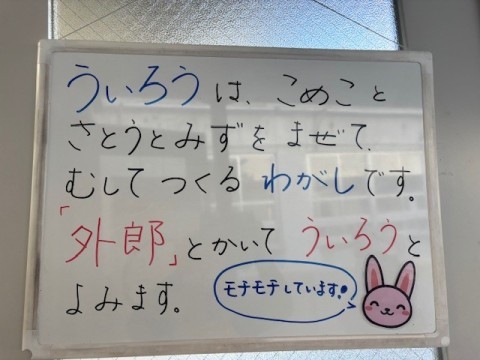 ういろうは、こめこと
さとうとみずをまぜて、
むしてつくるわがしです。
「外郎」とかいてういろうと
よみます。
モチモチしています!